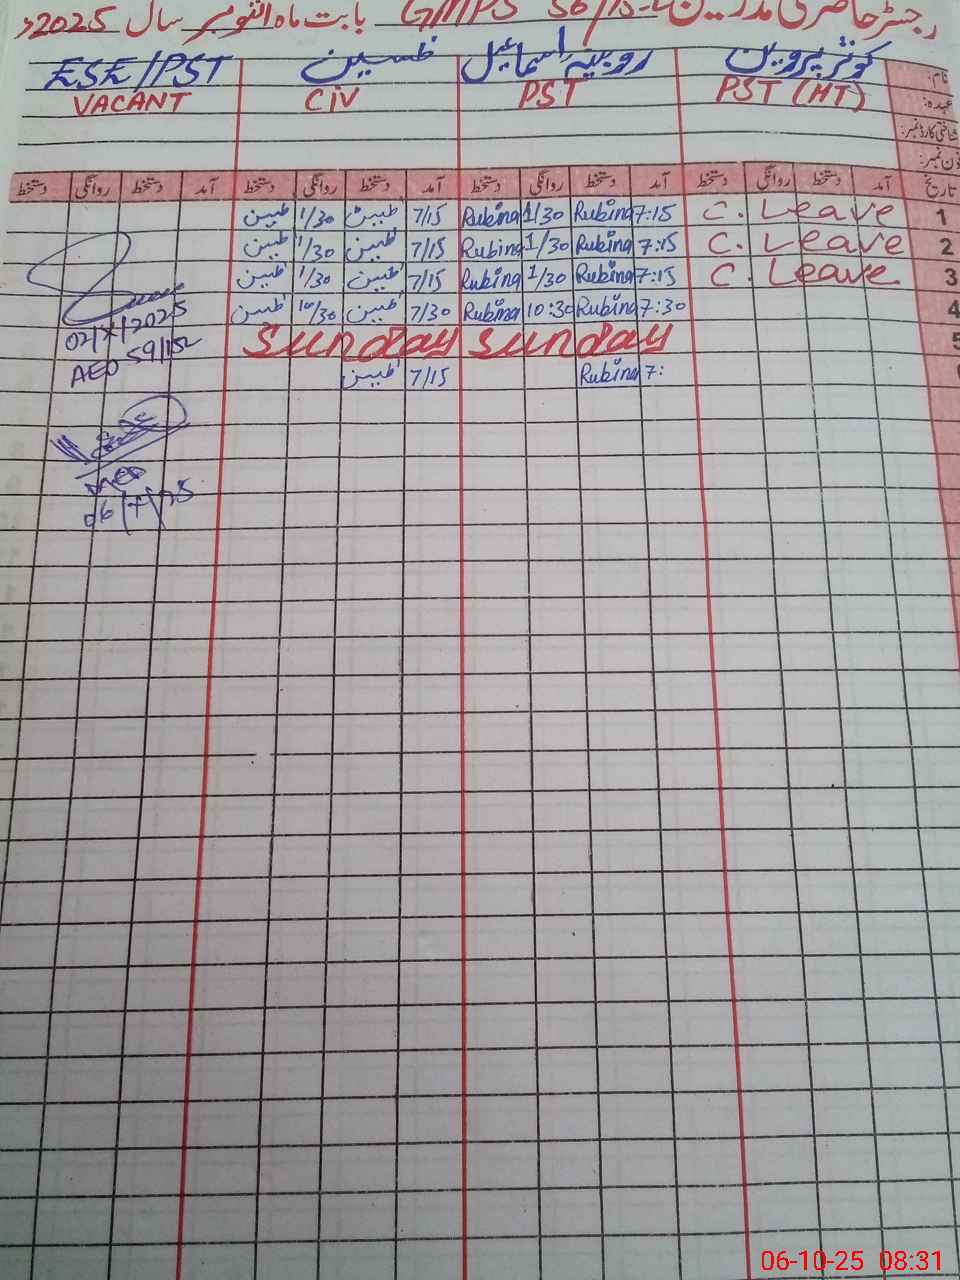 رجسٹر حاضری مدرسین GMPS 56/15-L بابت ماہ اکتوبر سال 2025ء
نام: کوثر پروین روبینہ اسماعیل ESE/PST
عہدہ: PST (HT) PST CIV VACANT
شناختی کارڈ نمبر:
فون نمبر:
تاریخ آمد دستخط روانگی دستخط آمد دستخط روانگی دستخط آمد دستخط روانگی دستخط آمد دستخط روانگی دستخط
1 C. Leave 7:15 Rubina 1/30 Rubina 7/15 1/30
2 C. Leave 7:15 Rubina 1/30 Rubina 7/15 1/30
3 C. Leave 7:15 Rubina 1/30 Rubina 7/15 1/30
4 7:30 Rubina 10:30 Rubina 7/30 10/30
5 Sunday Sunday
7: Rubina 7/15
02/X/2025
AEO 59/15L
06-10-25 08:31